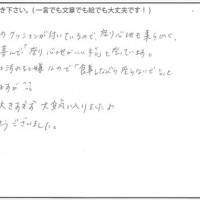 き下さい。(一言でも文章でも絵でも大丈夫です!)
のクッションが付いているので、座り心地も柔らかく、
喜んで「座り心地がいい」と座っています。
汚れると嫌なので「食事しながら座らないで」と
ますが^^;
大きすぎず大変気に入りましたよ
うございました。